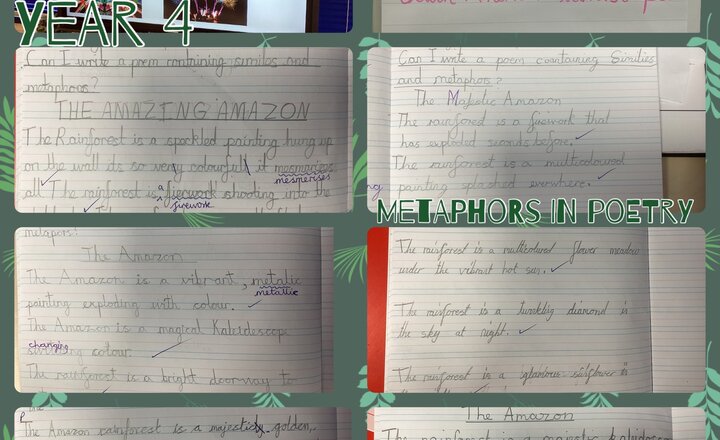 YEAR 4
Can I write a poem containing similes and
metaphors?
THE AMAZING AMAZON
The Rainforest is a speckled painting hung up
on the wall its so very colourful it mesmorises
mesmerises
all. The rainforest is a firework shooting into the
firework
Can I write a poem containing Similies
and metaphors?
The Majestic Amazon
The rainforest is a firework that
has exploded seconds before.
The rainforest is a multicoloured
painting splashed everywhere.
METAPHORS IN POETRY
metaphors?
The Amazon
The Amazon is a vibrant, metalic
metallic
painting exploding with colour.
The Amazon is a magical Kaleidescope
changing
colour.
The rainforest is a bright doorway to
the
The rainforest is a multicolured flower meadow
under the vibrant hot sun.
The rainforest is a diamond in
the sky at night.
The rainforest is a glamorous sunflower in
The Amazon rainforest is a golden,
The Amazon
The rainforest is a majestic